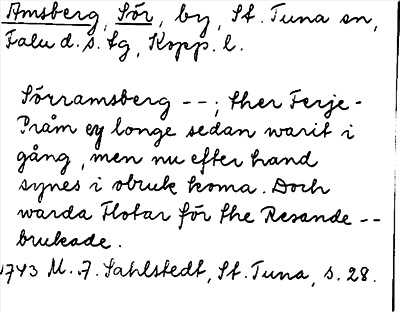 Amsberg, Sör, by, St. Tuna sn,
Falu d. s. tg, Kopp. l.
Sörramsberg --; ther Ferje-
Pråm ey longe sedan warit i
gång, men nu efter hand
synes i obruk koma. Doch
warda Flotar för the Resande --
brukade.
1743 M. A. Sahlstedt, St. Tuna, s. 28.